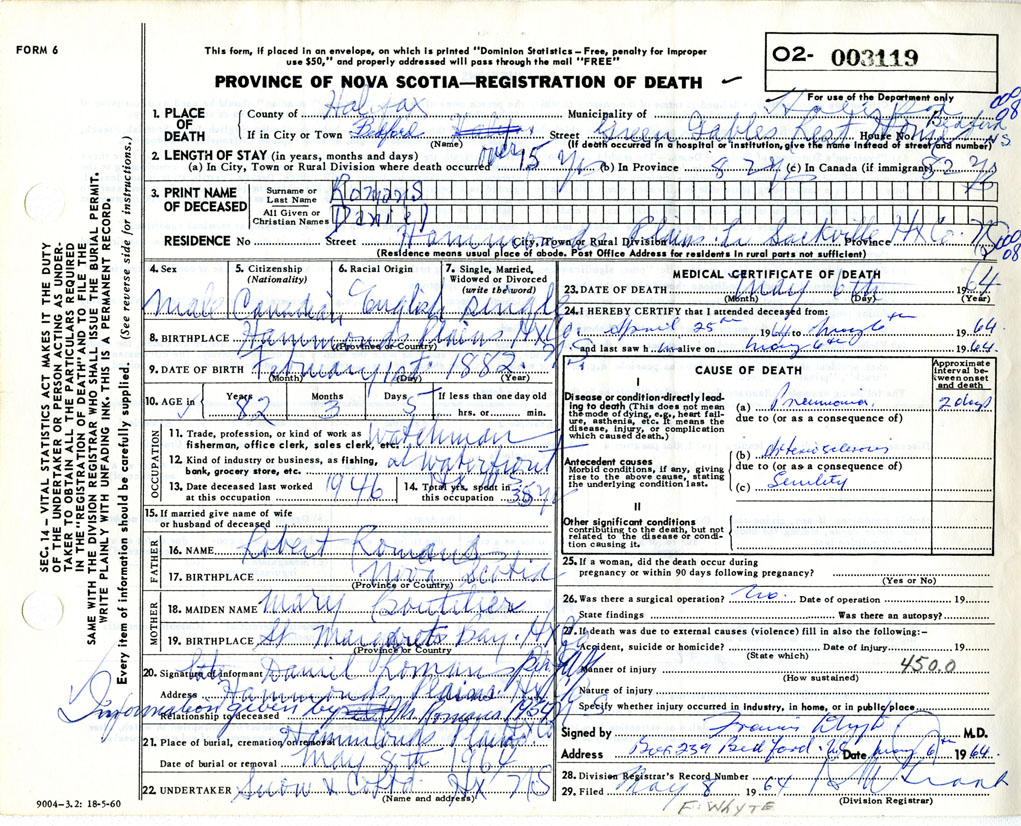 FORM 6
This form, if placed in an envelope, on which is printed "Dominion Statistics – Free, penalty for improper
use $50," and properly addressed will pass through the mail "FREE"
PROVINCE OF NOVA SCOTIA—REGISTRATION OF DEATH
02- 003119
For use of the Department only
1. PLACE OF DEATH
County of Halifax Municipality of Halifax
If in City or Town Bedford Street Green Gables Rest Home House No. Bedford NS
(Name) (If death occurred in a hospital or institution, give the name instead of street and number)
2. LENGTH OF STAY (in years, months and days)
(a) In City, Town or Rural Division where death occurred over 15 yrs (b) In Province 82 yrs (c) In Canada (if immigrant) 82 yrs
3. PRINT NAME OF DECEASED
Surname or Last Name Romans
All Given or Christian Names Daniel
RESIDENCE No Street Hammonds Plains City, Town or Rural Division Sackville Hx Co. Province
(Residence means usual place of abode. Post Office Address for residents in rural parts not sufficient)
08
08
4. Sex 5. Citizenship (Nationality) 6. Racial Origin 7. Single, Married, Widowed or Divorced (write the word)
Male Canadian English single
8. BIRTHPLACE Hammonds Plains Hx Co. NS
(Province or Country)
9. DATE OF BIRTH February 1st 1882
(Month) (Day) (Year)
10. AGE in Years 82 Months 3 Days 5 If less than one day old
hrs. or min.
OCCUPATION
11. Trade, profession, or kind of work as fisherman, office clerk, sales clerk, etc. Watchman
12. Kind of industry or business, as fishing, bank, grocery store, etc. at waterfront
13. Date deceased last worked at this occupation 1946
14. Total yrs. spent in this occupation 35 yrs
15. If married give name of wife or husband of deceased
FATHER
16. NAME Robert Romans
17. BIRTHPLACE Nova Scotia
(Province or Country)
MOTHER
18. MAIDEN NAME Mary Boutilier
19. BIRTHPLACE St Margarets Bay. Hx Co
(Province or Country)
20. Signature of informant Daniel Romans
Address Hammonds Plains Hx Co NS
Information given by Romans
Relationship to deceased
21. Place of burial, cremation or removal Hammonds Plains
Date of burial or removal May 8th 1964
22. UNDERTAKER Snow & Co Ltd Hx NS
(Name and address)
9004-3.2: 18-5-60
MEDICAL CERTIFICATE OF DEATH
23. DATE OF DEATH May 6th 1964
(Month) (Day) (Year)
24. I HEREBY CERTIFY that I attended deceased from:
April 25th 1964 to May 6th 1964
and last saw him alive on May 6th 1964
CAUSE OF DEATH
Approximate interval between onset and death
I
Disease or condition directly leading to death (This does not mean the mode of dying, e.g., heart failure, asthenia, etc. It means the disease, injury, or complication which caused death.)
(a) Pneumonia 2 days
due to (or as a consequence of)
Antecedent causes
Morbid conditions, if any, giving rise to the above cause, stating the underlying condition last.
(b) Arteriosclerosis
due to (or as a consequence of)
(c) Senility
II
Other significant conditions
contributing to the death, but not related to the disease or condition causing it.
25. If a woman, did the death occur during
pregnancy or within 90 days following pregnancy?
(Yes or No)
26. Was there a surgical operation? No. Date of operation 19
State findings Was there an autopsy?
27. If death was due to external causes (violence) fill in also the following:–
Accident, suicide or homicide? Date of injury 19
(State which)
Manner of injury 450.0
(How sustained)
Nature of injury
Specify whether injury occurred in industry, in home, or in public place
Signed by Francis Whyte M.D.
Address Box 239 Bedford. NS Date May 6th 1964.
28. Division Registrar's Record Number
29. Filed May 8 1964
(Division Registrar)
F. WHYTE
SEC. 14 – VITAL STATISTICS ACT MAKES IT THE DUTY
OF THE UNDERTAKER OR PERSON ACTING AS UNDER-
TAKER TO OBTAIN ALL THE PARTICULARS REQUIRED
IN THE "REGISTRATION OF DEATH" AND TO FILE THE
SAME WITH THE DIVISION REGISTRAR WHO SHALL ISSUE THE BURIAL PERMIT.
WRITE PLAINLY WITH UNFADING INK. THIS IS A PERMANENT RECORD.
Every item of information should be carefully supplied. (See reverse side for instructions.)